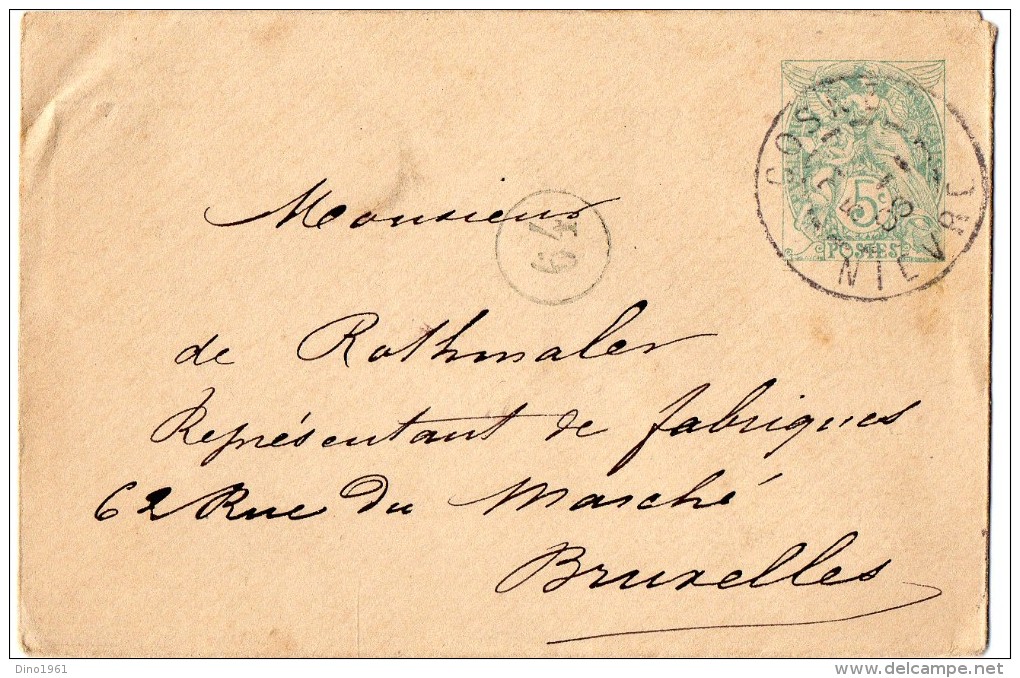 COSNE
NIEVRE
5c
POSTES
64
Monsieur
de Rothmaler
Représentant de fabriques
62 Rue du Marché
Bruxelles
Dino1961
delcampe.net